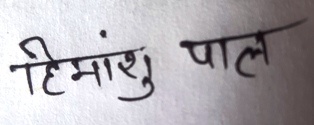 हिमांशु पाल